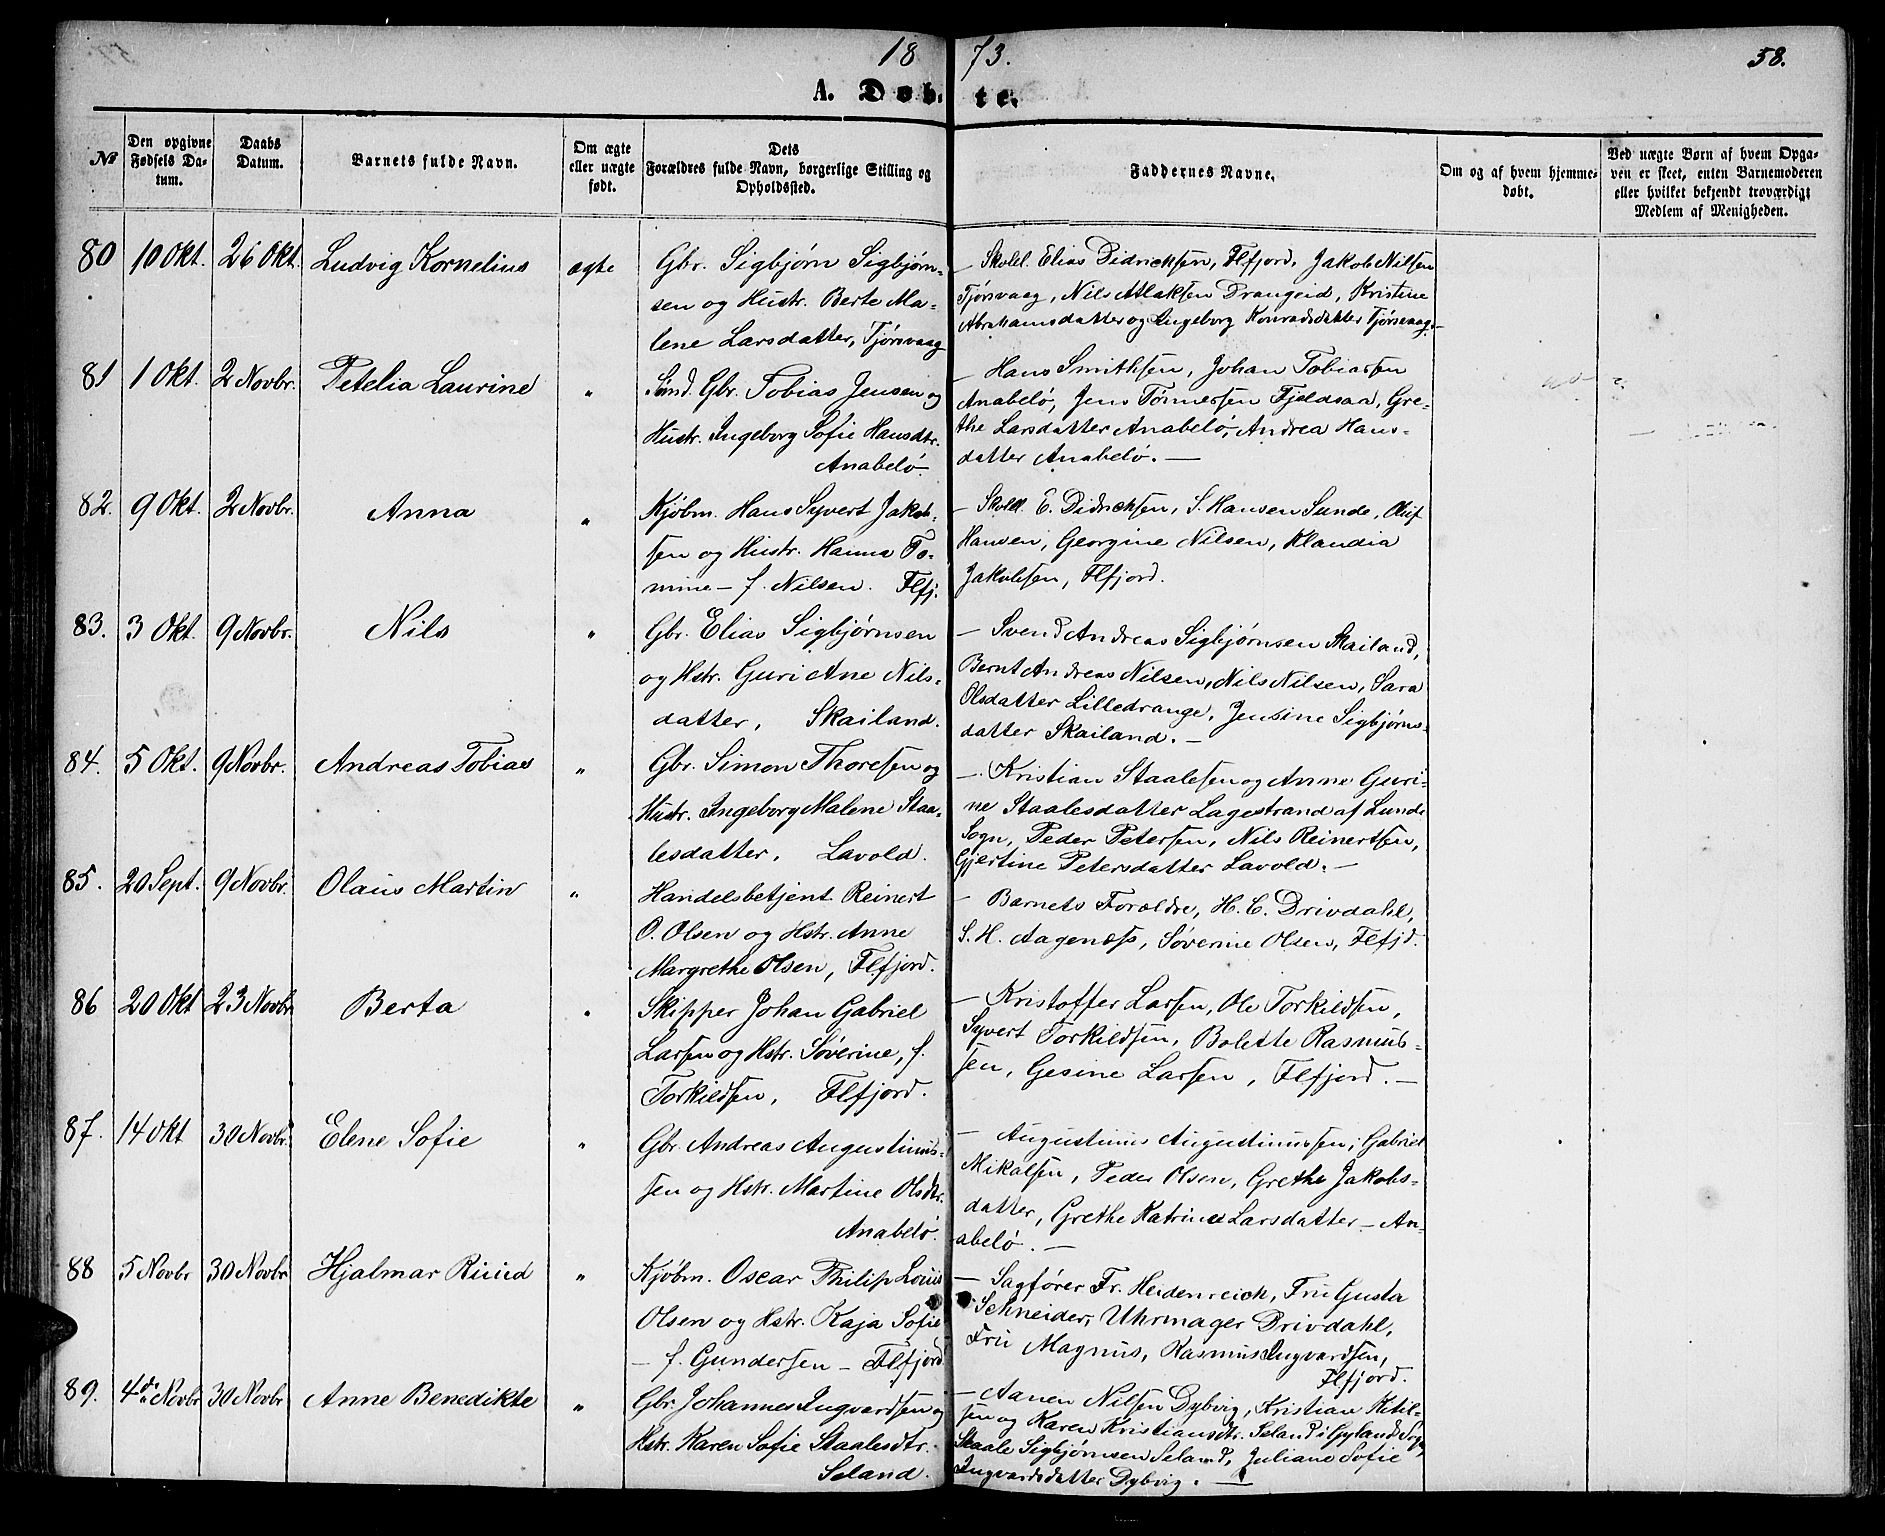 1873.
58.
A. Døbte.
No
Den opgivne Fødsels Datum.
Daabs Datum.
Barnets fulde Navn.
Om ægte eller uægte født.
Dets Forældres fulde Navn, borgerlige Stilling og Opholdssted.
Faddernes Navne.
Om og af hvem hjemmedøbt.
Ved uægte Børn af hvem Opgaven er skeet, enten Barnemoderen eller hvilket bekjendt troværdigt Medlem af Menigheden.
80 10 Okt. 26 Okt. Ludvig Kornelius ægte
Gbr. Sigbjørn Sigbjørn-
sen og Hustr. Berte Ma-
lene Larsdatter, Tjørsvaag
– Skolel. Elias Didricksen, Flfjord, Jakob Nilsen
Tjørsvaag, Nils Atlaksen Drangeid, Kristine
Abrahamsdatter og Ingeborg Konradsdatter Tjørsvaag.–
81 1 Okt. 2 Novbr. Petelia Laurine "
Sømd. Gbr. Tobias Jensen og
Hustr. Ingeborg Sofie Hansdtr.
Anabelø.
– Hans Smithsen, Johan Tobiassen
Anabelø, Jens Tønnessen Fjeldsaa, Gre-
the Larsdatter Anabelø, Andrea Hans-
datter Anabelø. –
82. 9 Okt. 2 Novbr. Anna "
Kjøbm. Hans Syvert Jakob-
sen og Hustr. Hanna To-
mine – f. Nilsen. Flfj.
– Skolel. E. Didricksen, S. Hansen Sunde, Oluf
Hansen, Georgine Nilsen, Klandia
Jakobsen, Flfjord.
83. 3 Okt. 9 Novbr. Nils "
Gbr. Elias Sigbjørnsen
og Hstr. Guri Ane Nils-
datter, Skailand.
– Svend Andreas Sigbjørnsen Skailand,
Bernt Andreas Nilsen, Nils Nilsen, Sara
Olsdatter Lilledrange, Jensine Sigbjørns-
datter Skailand. –
84. 5 Okt. 9 Novbr. Andreas Tobias "
Gbr. Simon Thoresen og
Hustr. Ingeborg Malene Staa-
lesdatter, Lavold.
– Kristian Staalesen og Anne Guri-
ne Staalesdatter Lagestrand af Lunde
Sogn, Peder Petersen, Nils Reinertsen,
Gjertine Petersdatter Lavold. –
85. 20 Sept. 9 Novbr. Olaus Martin "
Handelsbetjent Reinert
O. Olsen og Hstr. Anne
Margrethe Olsen, Flfjord.
– Barnets Forældre, H. C. Drivdahl,
S. H. Aagenæss, Søverine Olsen, Flfjd.
86 20 Okt 23 Novbr Berta "
Skipper Johan Gabriel
Larsen og Hstr. Søverine, f.
Torkildsen, Flfjord.
– Kristoffer Larsen, Ole Torkildsen,
Syvert Torkildsen, Bolette Rasmus-
sen, Gesine Larsen, Flfjord. –
87. 14 Okt 30 Novbr. Elene Sofie "
Gbr. Andreas Augustinus-
sen og Hstr. Martine Olsdtr.
Anabelø.
– Augustinus Augustinussen, Gabriel
Mikalsen, Peder Olsen, Grethe Jakobs-
datter, Grethe Katrine Larsdatter – An-
abelø. –
88 5 Novbr 30 Novbr Hjalmar Ruud "
Kjøbm. Oscar Philip Louis
Olsen og Hstr. Kaja Sofie
– f. Gundersen – Flfjord
– Sagfører Fr. Heidenreich, Fru Gusta
Schneider, Uhrmager Drivdahl,
Fru Magnus, Rasmus Ingvardsen,
Flfjord.
89. 4de Novbr 30 Novbr Anne Benedikte "
Gbr. Johannes Ingvardsen og
Hstr. Karen Sofie Staalesdtr.
Seland.
– Aanen Nilsen Dybvig, Kristian Ketil-
sen og Karen Kristiansdtr. Seland i Gylands Sogn,
Staale Sigbjørnsen Seland, Juliane Sofie
Ingvardsdatter Dybvig. –